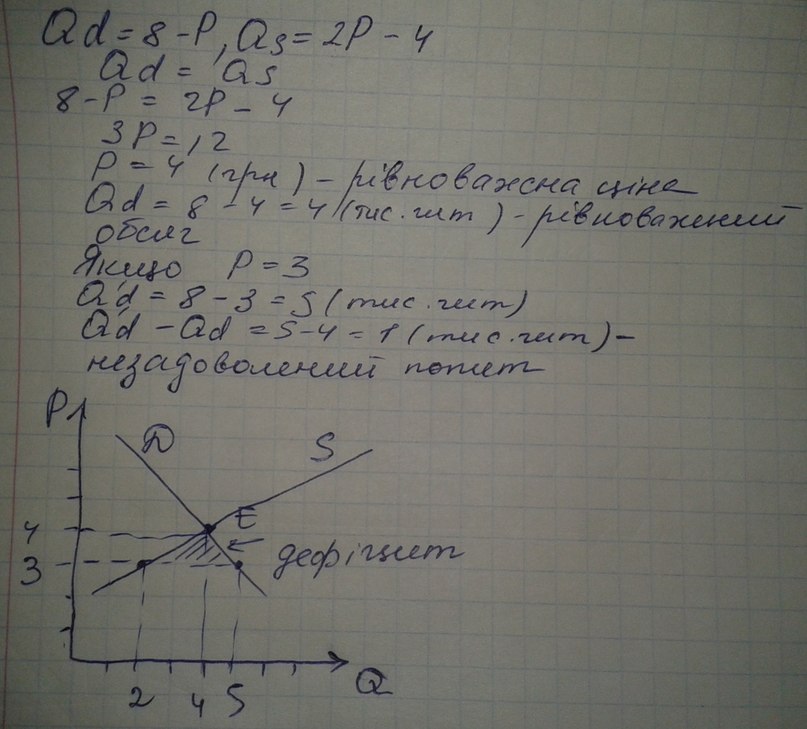 Qd = 8 - P, Qs = 2P - 4
Qd = Qs
8 - P = 2P - 4
3P = 12
P = 4 (грн) - рівноважна ціна
Qd = 8 - 4 = 4 (тис.шт) - рівноважний
обсяг
Якщо P = 3
Qd = 8 - 3 = 5 (тис.шт)
Qd - Qd = 5 - 4 = 1 (тис.шт) -
незадоволений попит
P
D
S
4
E
3
дефіцит
2 4 5
Q